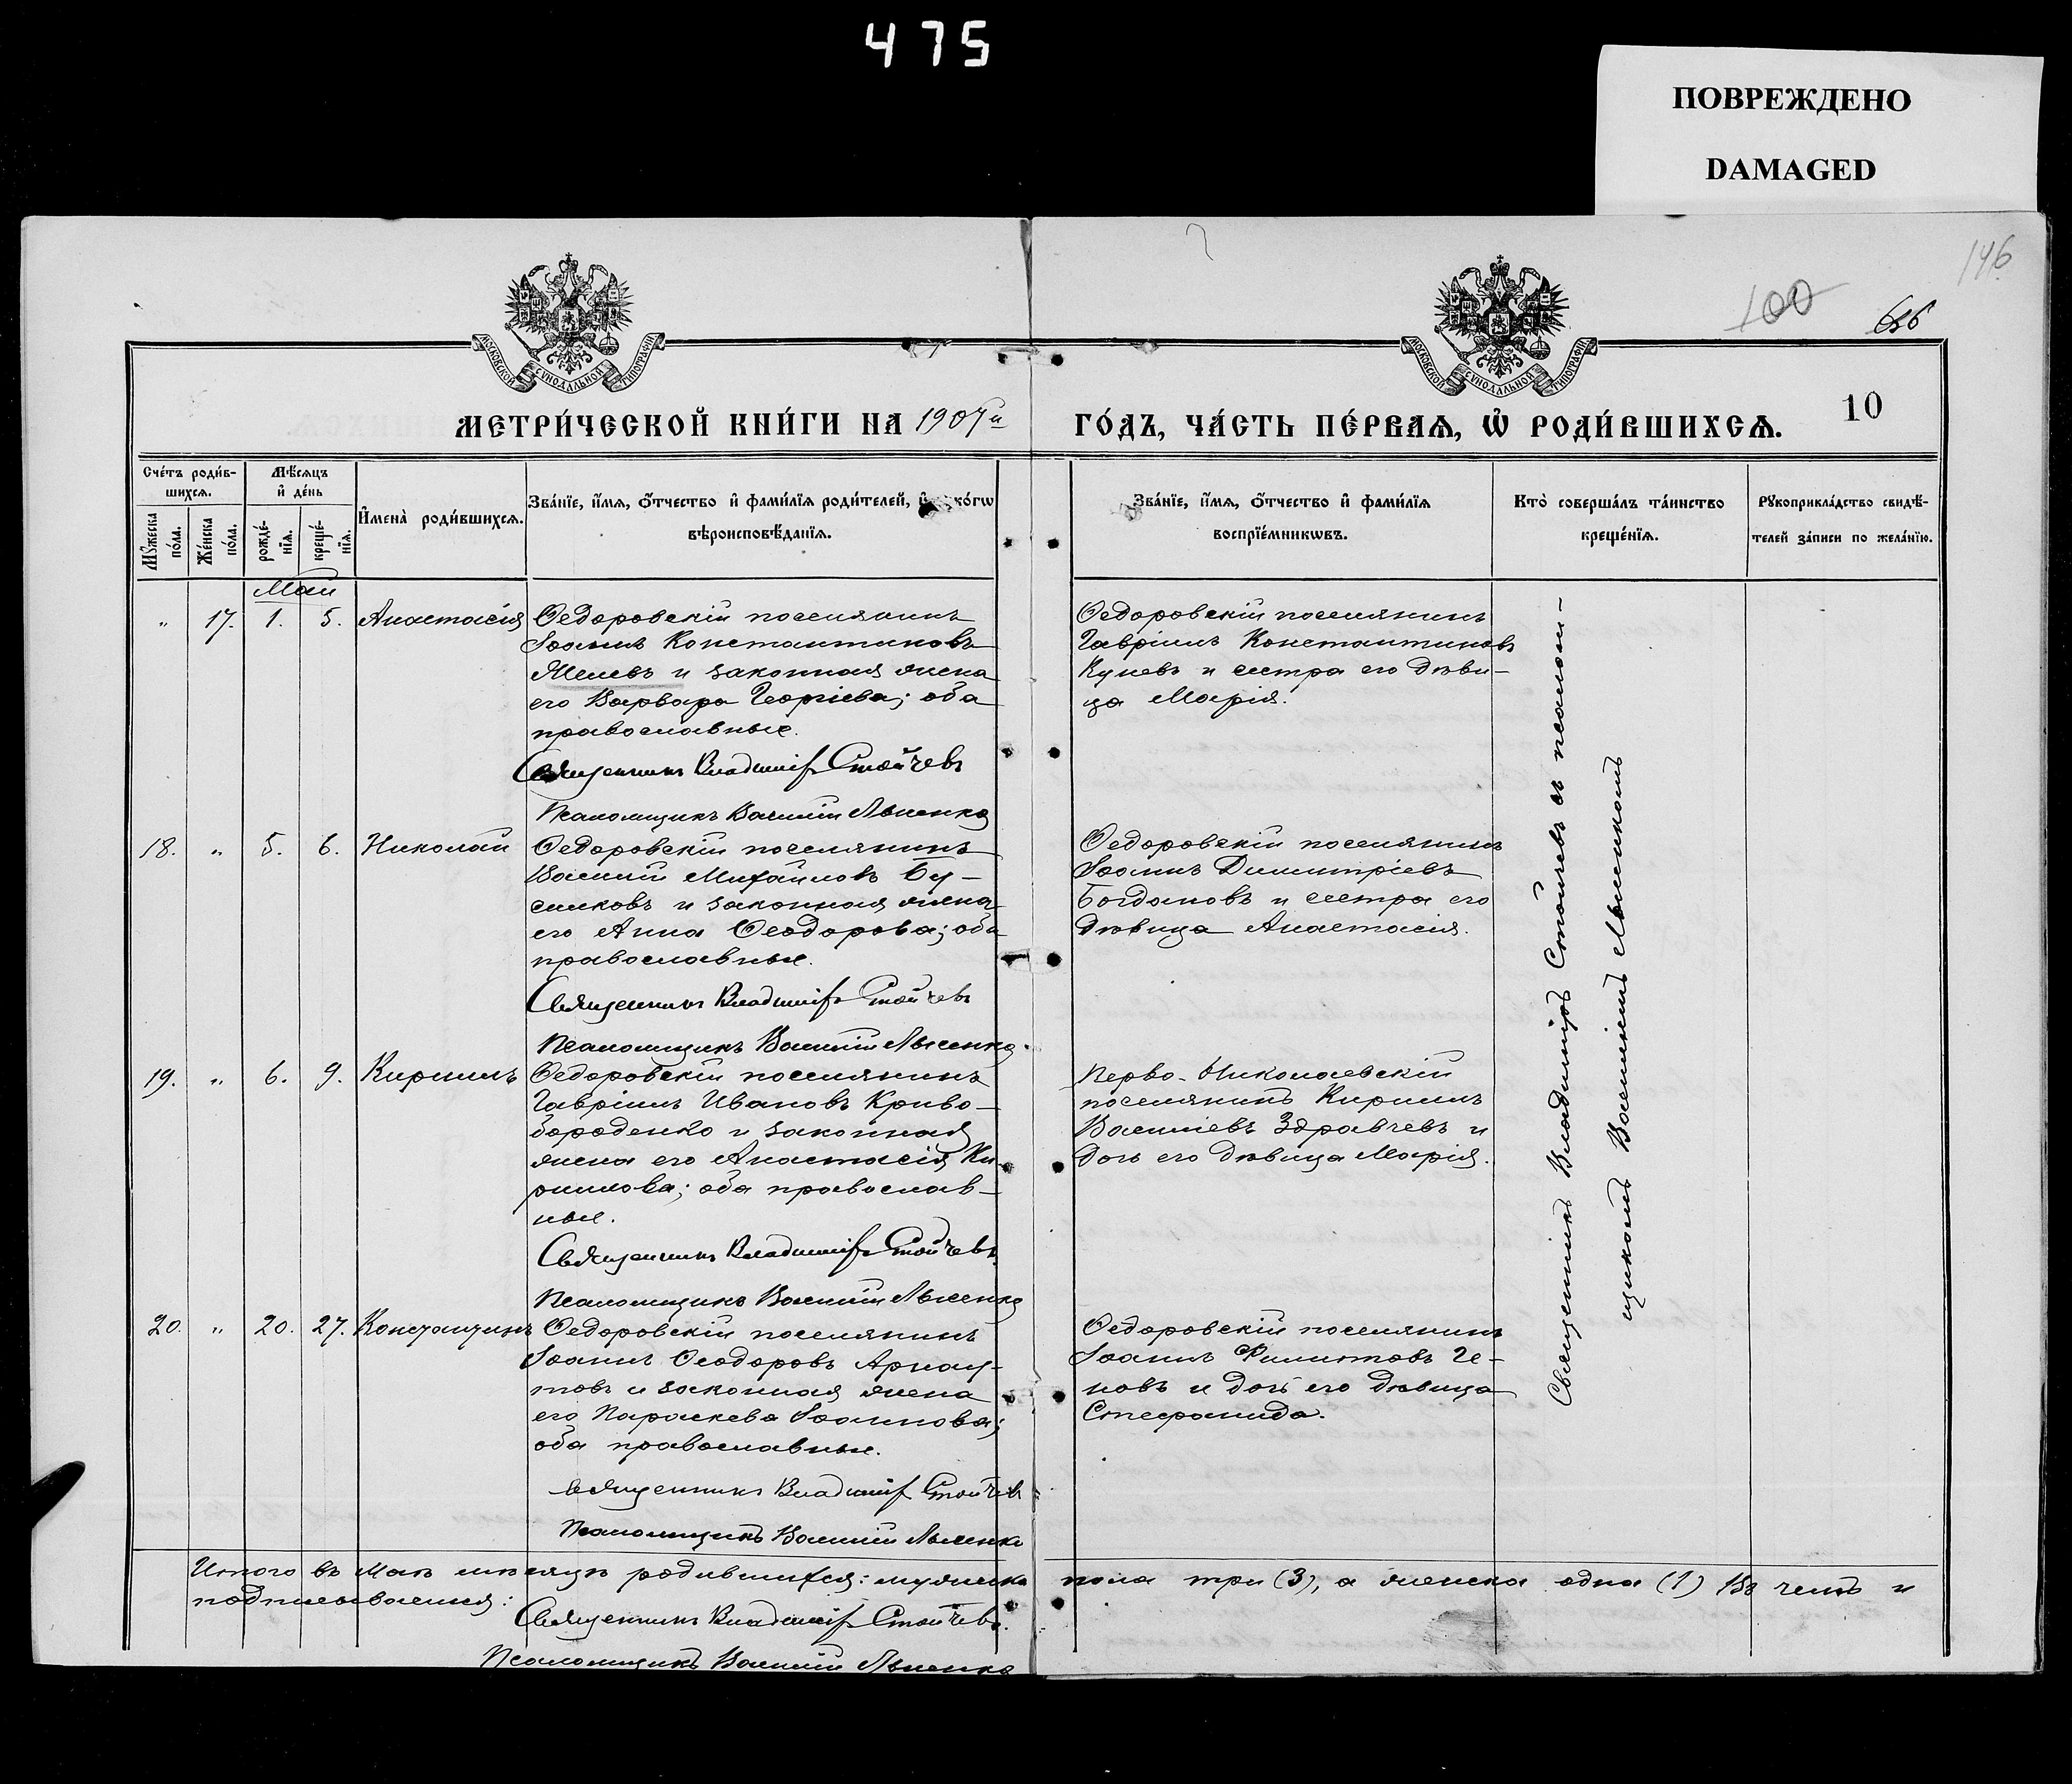 475
ПОВРЕЖДЕНО
DAMAGED
146
100
МОСКОВСКОЙ СѴНОДАЛЬНОЙ ТИПОГРАФІИ
МОСКОВСКОЙ СѴНОДАЛЬНОЙ ТИПОГРАФІИ
МЕТРИ́ЧЕСКОЙ КНИ́ГИ НА 190 й ГО́ДЪ, ЧА́СТЬ ПЕ́РВАѦ, Ѡ҆ РОДИ́ВШИХСѦ.
10
Сче́тъ роди́в-
шихсѧ.
Мѣ́сѧцъ
и҆ де́нь
Мꙋ́жеска
по́ла.
Же́нска
по́ла.
рожде́-
нїѧ.
креще́-
нїѧ.
И҆мена̀ роди́вшихсѧ.
Зва́нїе, и҆́мѧ, ѻ҆́тчество и҆ фами́лїѧ роди́телей, и҆ ко́гѡ
вѣроисповѣ́данїѧ.
Зва́нїе, и҆́мѧ, ѻ҆́тчество и҆ фами́лїѧ
воспрїе́мникѡвъ.
Кто̀ соверша́лъ та́инство
креще́нїѧ.
Рꙋкоприкла́дство свидѣ́-
телей за́писи по жела́нїю.
Май
„ 17. 1. 5. Анастасія
Ѳедоровскій поселянинъ
Іоаннъ Константиновъ
и законная жена
его Варвара Георгіева; оба
православные.
Священникъ Владиміръ Стойчевъ
Псаломщикъ Василій Лысенко
Ѳедоровскій поселянинъ
Гавріилъ Константиновъ
Куневъ и сестра его дѣви-
ца Марія.
18. „ 5. 6. Николай
Ѳедоровскій поселянинъ
Василій Михайловъ Бу-
слковъ и законная жена
его Анна Ѳеодорова; оба
православные.
Священникъ Владиміръ Стойчевъ
Псаломщикъ Василій Лысенко.
Ѳедоровскій поселянинъ
Іоаннъ Димитріевъ
Богдановъ и сестра его
дѣвица Анастасія.
19. „ 6. 9. Кириллъ
Ѳедоровскій поселянинъ
Гавріилъ Ивановъ Криво-
бороденко и законная
жена его Анастасія Ки-
риллова; оба православ-
ные.
Священникъ Владиміръ Стойчевъ.
Псаломщикъ Василій Лысенко
Перво-Николаевскій
поселянинъ Кириллъ
Василіевъ Здравчевъ и
дочь его дѣвица Марія.
20. „ 20. 27. Константинъ
Ѳедоровскій поселянинъ
Іоаннъ Ѳеодоровъ Арнау-
товъ и законная жена
его Параскева Іоаннова;
оба православные.
Священникъ Владиміръ Стойчевъ
Псаломщикъ Василій Лысенко
Ѳедоровскій поселянинъ
Іоаннъ Филиповъ Ге-
новъ и дочь его дѣвица
Стефанида.
Священникъ Владиміръ Стойчевъ съ псалом-
щикомъ Василіемъ Лысенкомъ
Итого въ Маѣ мѣсяцѣ родившихся: мужеска пола три (3), а женска одна (1) Въ чемъ и
подписываемся:
Священникъ Владиміръ Стойчевъ.
Псаломщикъ Василій Лысенко